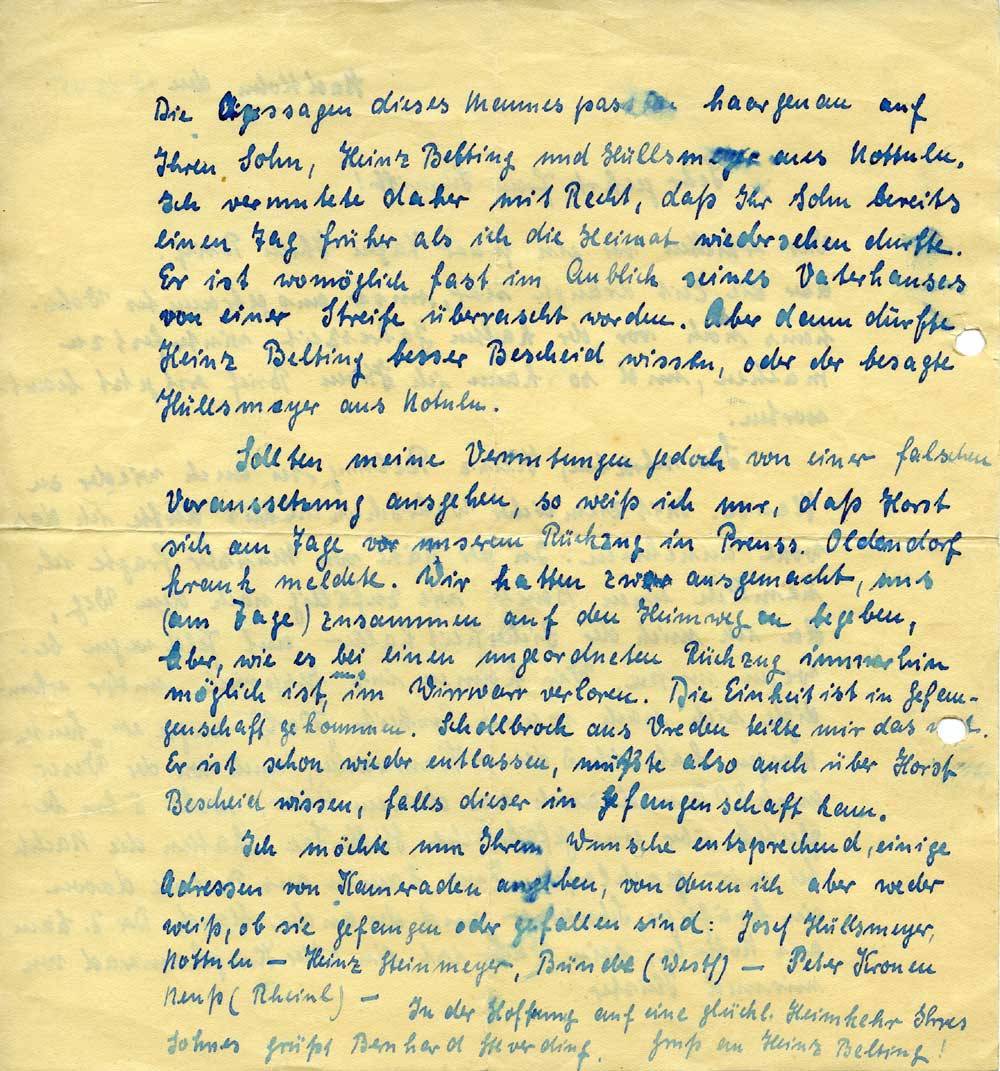 Die Aussagen dieses Mannes passten haargenau auf
Ihren Sohn, Heinz Belting und Hüllsmeyer aus Nottuln.
Ich vermutete daher mit Recht, daß Ihr Sohn bereits
einen Tag früher als ich die Heimat wiedersehen durfte.
Er ist womöglich fast im Anblick seines Vaterhauses
von einer Streife überrascht worden. Aber dann dürfte
Heinz Belting besser Bescheid wissen, oder der besagte
Hüllsmeyer aus Notuln.
Sollten meine Vermutungen jedoch von einer falschen
Voraussetzung ausgehen, so weiß ich nur, daß Horst
sich am Tage vor unserem Rückzug in Preuss. Oldendorf
krank meldete. Wir hatten zwar ausgemacht, uns
(am Tage) zusammen auf den Heimweg zu begeben,
Aber, wie es bei einen ungeordneten Rückzug immerhin
möglich ist, uns im Wirrwarr verloren. Die Einheit ist in Gefan-
genschaft gekommen. Schollbrock aus Vreden teilte mir das mit.
Er ist schon wieder entlassen, müßte also auch über Horst
Bescheid wissen, falls dieser in Gefangenschaft kam.
Ich möchte nun Ihrem Wunsche entsprechend, einige
Adressen von Kameraden angeben, von denen ich aber weder
weiß, ob sie gefangen oder gefallen sind: Josef Hüllsmeyer,
Nottuln – Heinz Steinmeyer, Bünde (Westf) – Peter Kronen
Neuß (Rheinl) –
In der Hoffnung auf eine glückl. Heimkehr Ihres
Sohnes grüßt Bernhard Steverding. Gruß an Heinz Belting!